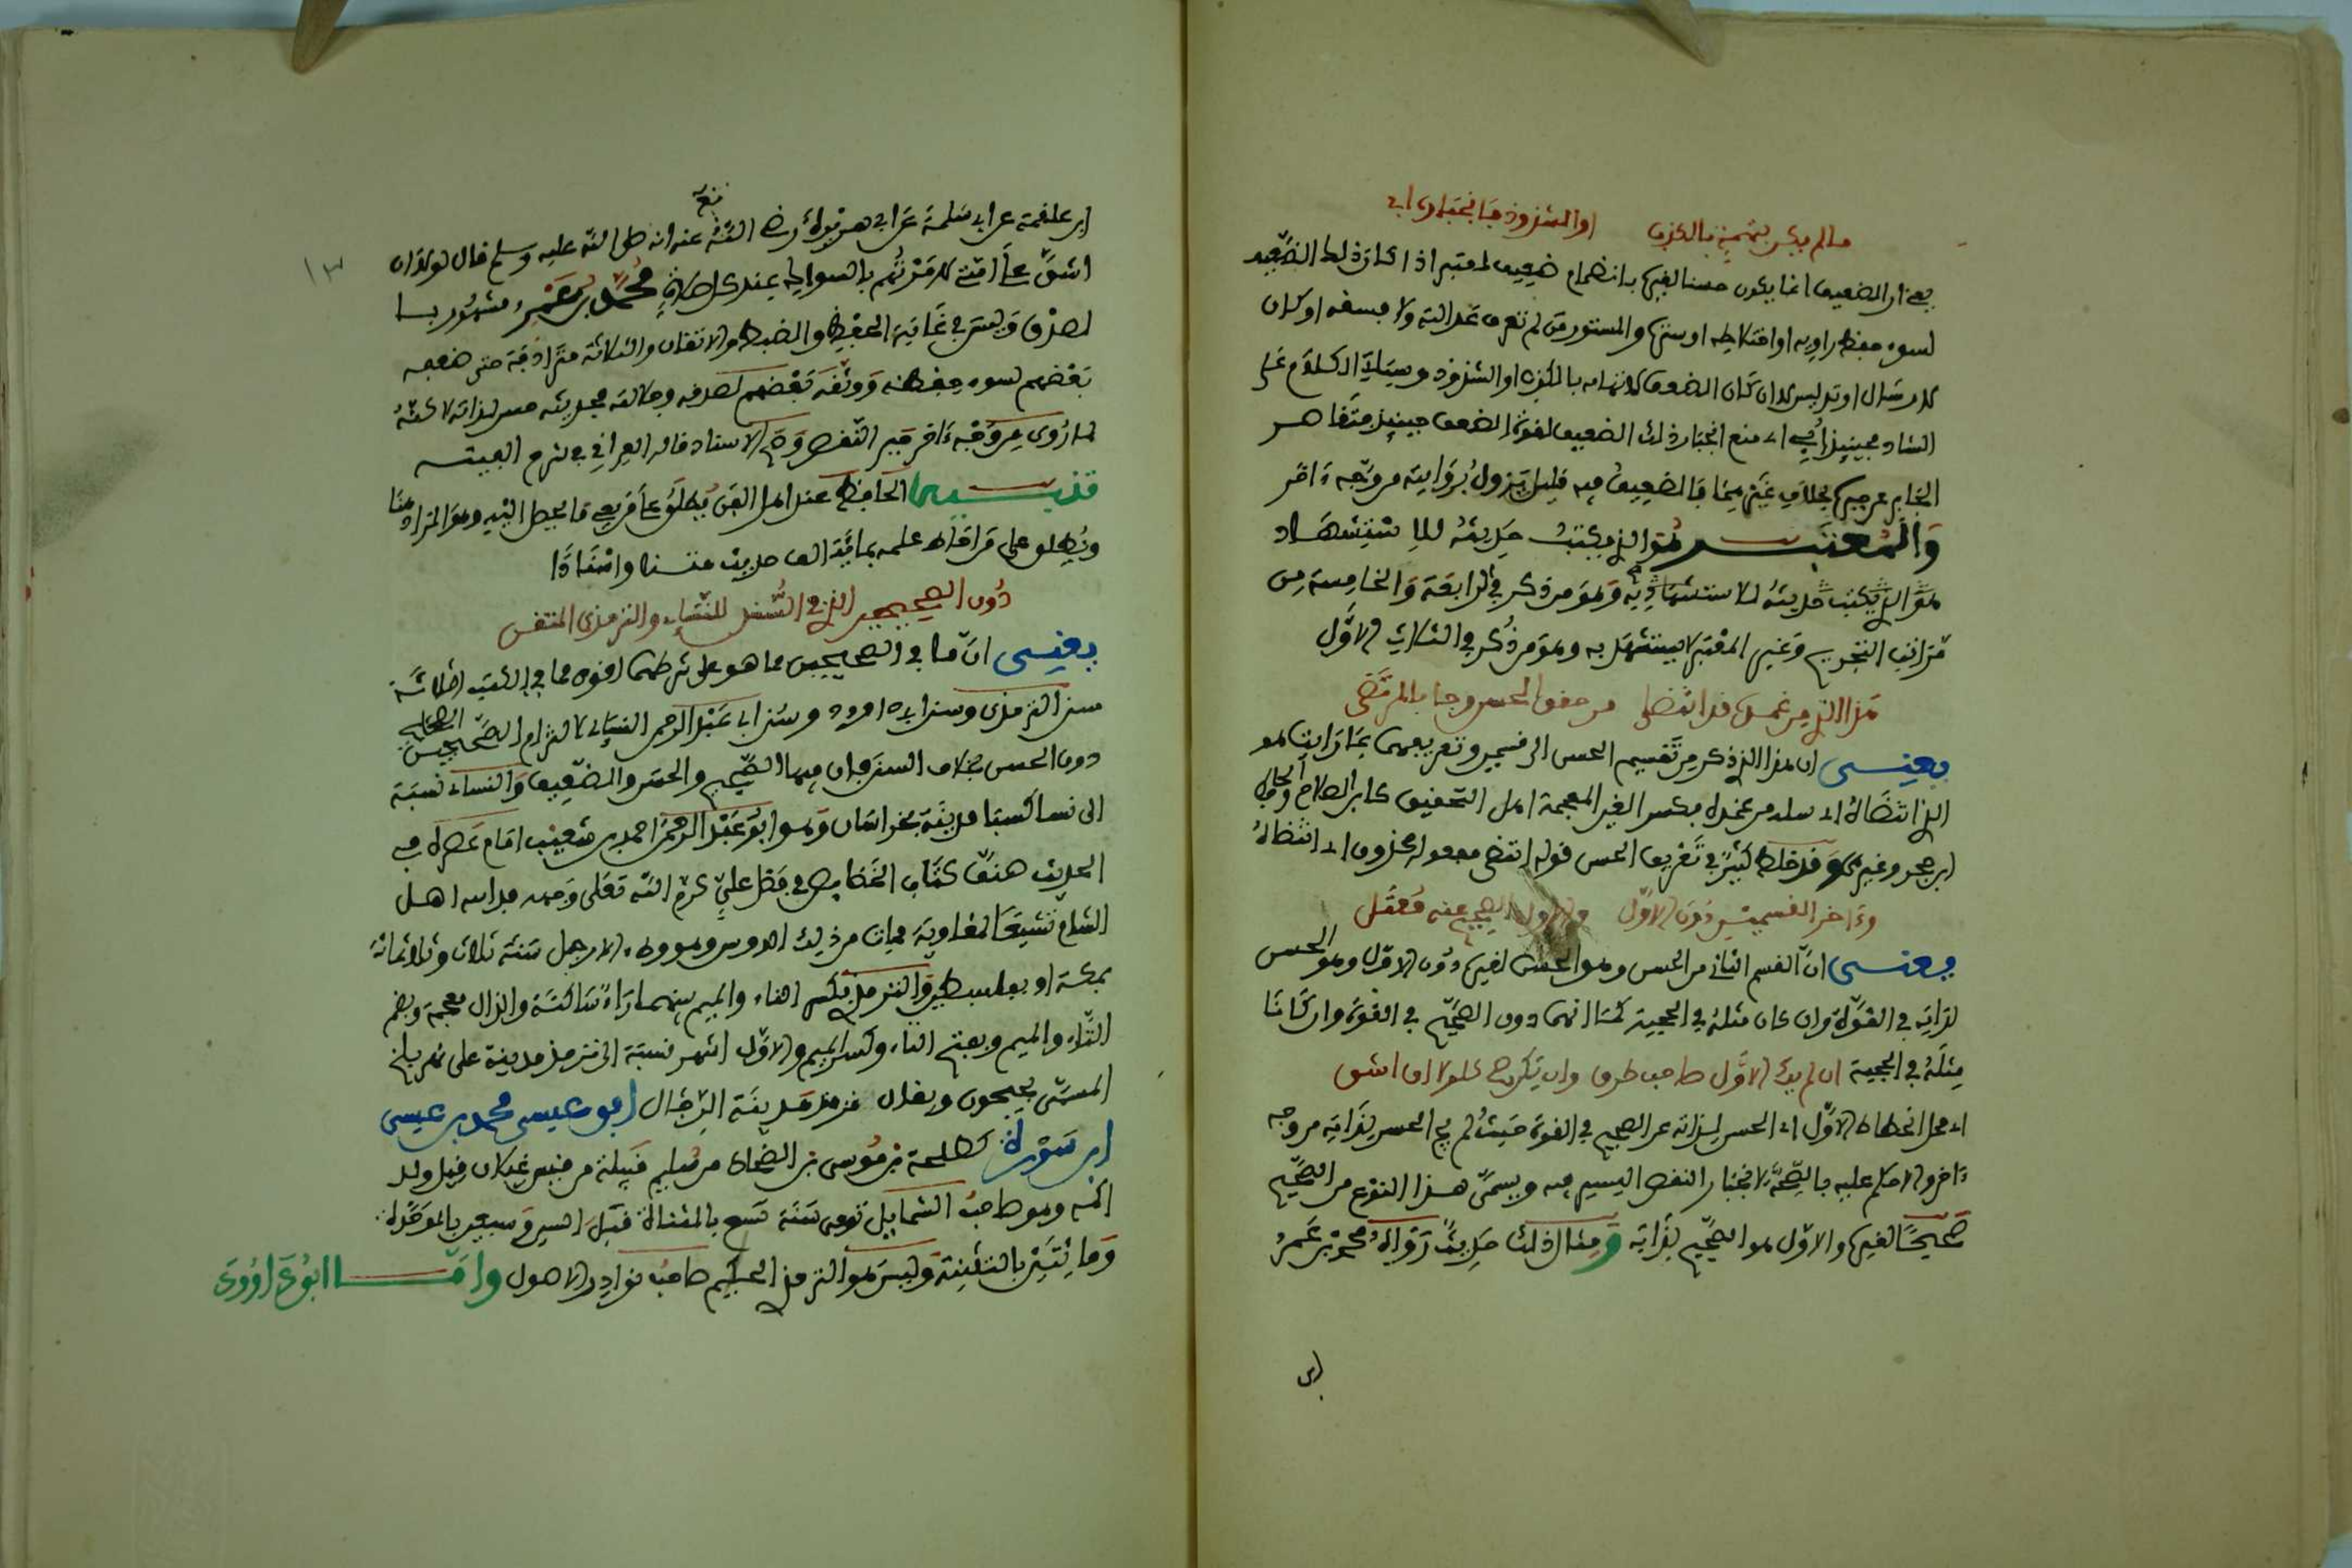 ما لم يكن بتهمة بالكذب او الشذوذ فانجباره ابي
يعني ان الضعيف انما يكون حسنا لغيره بانضمام ضعيف معتبر اذا كان ذلك الضعف
لسوء حفظ راويه او اختلاطه او ستره والمستور من لم تعرف عدالته ولا فسقه او كان
لارسال او تدليس لا ان كان الضعف لاتهامه بالكذب او الشذوذ وسيأتي الكلام على
الشاذ فحينئذ أبي اي منع انجبار ذلك الضعيف لقوة الضعف حينئذ وتقاعد
الجابر عن جبره بخلاف غيرهما فالضعيف فيه قليل يزول بروايته من وجه ءاخر
والمعتبر هو الذي يكتب حديثه للاستشهاد
هو الذي يكتب حديثه للاستشهاد به وهو من ذكر في الرابعة والخامسة من
مراتب التجريح وغير المعتبر لا يستشهد به وهو من ذكر في الثلاث الاول
هذا الذي من غمده قد انتضى من حقق الحسن وجاء بالمرتضى
يعني ان هذا الذي ذكر من تقسيم الحسن الى قسمين وتعريفهما بما رايت هو
الذي انتضاه اي سله من غمده بكسر الغين المعجمة اهل التحقيق كابن الصلاح والحافظ
ابن حجر وغيرهما وقد خلط كثير في تعريف الحسن قوله انتضى مفعوله محذوف اي انتضاه
وءاخر القسمين دون الاول والاول الصحيح عنه معتل
يعني ان القسم الثاني من الحسن وهو الحسن لغيره دون الاول وهو الحسن
لذاته في القوة وان كان مثله في الحجية كما انهما دون الصحيح في القوة وان كانا
مثله في الحجية ان لم يك الاول صاحب طرق وان يكن صح كلولا ان اشق
اي محل انحطاط الاول اي الحسن لذاته عن الصحيح في القوة حيث لم يج الحسن لذاته من وجه
ءاخر والا حكم عليه بالصحة لانجبار النقص اليسير فيه ويسمى هذا النوع من الصحيح
صحيحا لغيره والاول هو الصحيح لذاته ومثال ذلك حديث رواه محمد بن عمر
ابن
١٣
ابن علقمة عن ابي سلمة عن ابي هريرة رضي الله تعلى عنه انه صلى الله عليه وسلم قال لولا ان
اشق على امتي لامرتهم بالسواك عند كل صلاة محمد بن عمر مشهور با
لصدق وليس في غاية الحفظ والضبط والاتقان والثلاثة مترادفة حتى ضعفه
بعضهم لسوء حفظه ووثقه بعضهم لصدقه وجلالته فحديثه حسن لذاته لاكنه
لما روي من وجه ءاخر جبر النقص وصح الاسناد قاله العراقي في شرح الفيته
تنبيه الحافظ عند اهل الفن يطلق على من يعي ما يصل اليه وهو المراد هنا
ويطلق على من احاط علمه بمائة الف حديث متنا واسنادا
دون الصحيحين الذي في السنن للنسائي والترمذي المتقن
يعني ان ما في الصحيحين مما هو على شرطهما اقوى مما في الكتب الثلاثة
سنن الترمذي وسنن ابي داوود وسنن ابي عبد الرحمن النسائي لالتزام الصحيحين الصحيح
دون الحسن بخلاف السنن فان فيها الصحيح والحسن والضعيف والنسائي نسبة
الى نسا كسبا مدينة بخراسان وهو ابو عبد الرحمن احمد بن شعيب امام عصره في
الحديث صنف كتاب الخصايص في فضل علي كرم الله تعلى وجهه فداسه اهل
الشام تشيعا لمعاوية فمات من ذلك الدوس وهو وطء الارجل سنة ثلاث وثلاثمائة
بمكة او بفلسطين والترمذي بكسر التاء والميم بينهما راء ساكنة والذال معجمة وبضم
التاء والميم وبفتح التاء وكسر الميم والاول اشهر نسبة الى ترمذ مدينة على نهر بلخ
المسمى بجيحون ويقال ترمذ مدينة الرجال ابو عيسى محمد بن عيسى
ابن سورة كطلحة بن موسى بن الضحاك من سليم قبيلة من قيس غيلان قيل ولد
اكمه وهو صاحب الشمايل توفي سنة تسع بالمثناة قبل السين وسبعين بالموحدة
ومائتين بالتثنية وليس هو الترمذي الحكيم صاحب نوادر الاصول واما ابو داوود